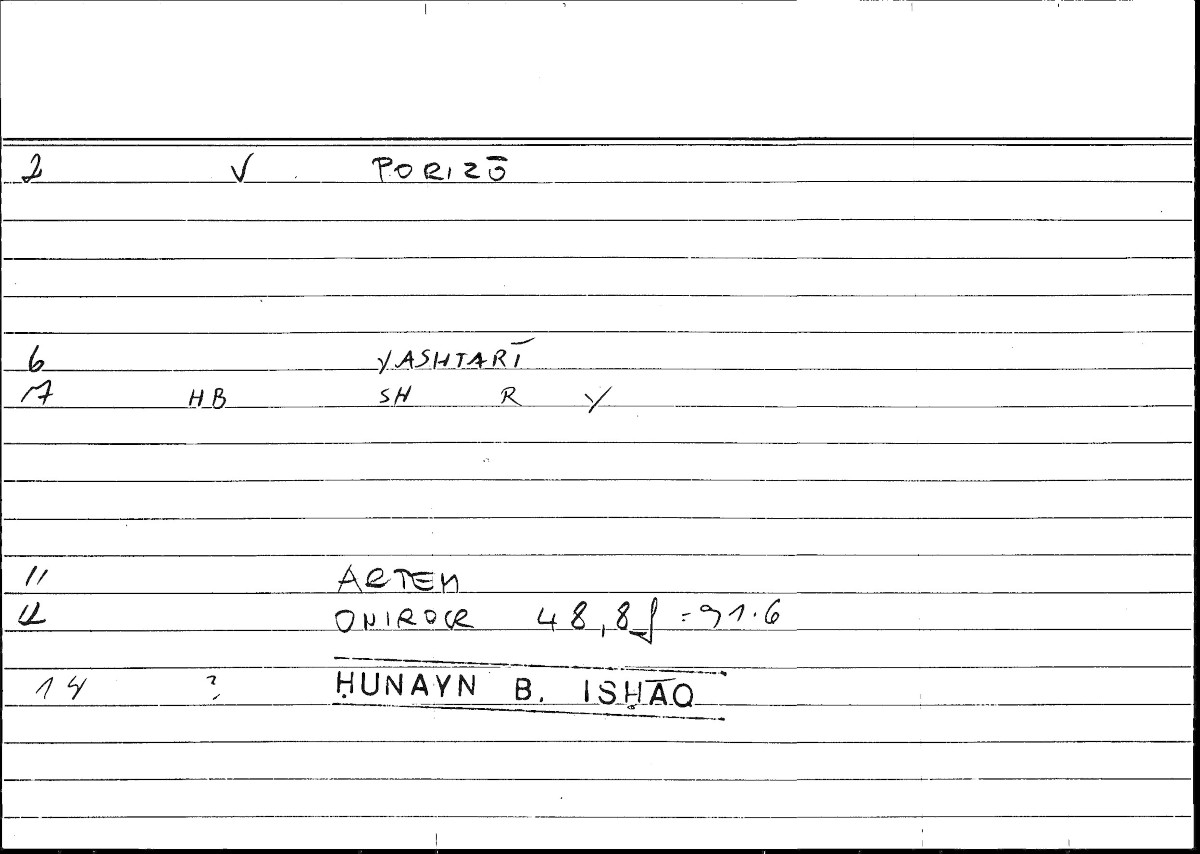 2 V PORIZŌ
6 YASHTARĪ
7 HB SH R Y
11 ARTEM
12 ONIROCR 48,8f = 91.6
14 ? ḤUNAYN B. ISḤĀQ